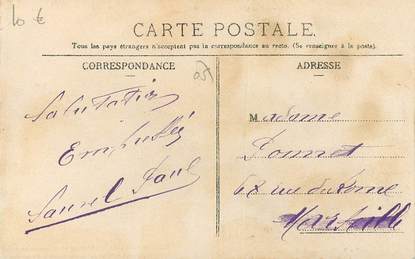 10 €
CARTE POSTALE.
Tous les pays étrangers n'acceptent pas la correspondance au recto. (Se renseigner à la poste).
CORRESPONDANCE
Salutation
Empressées
Paul
ADRESSE
Madame
Ponnet
68 rue de Rome
Marseille